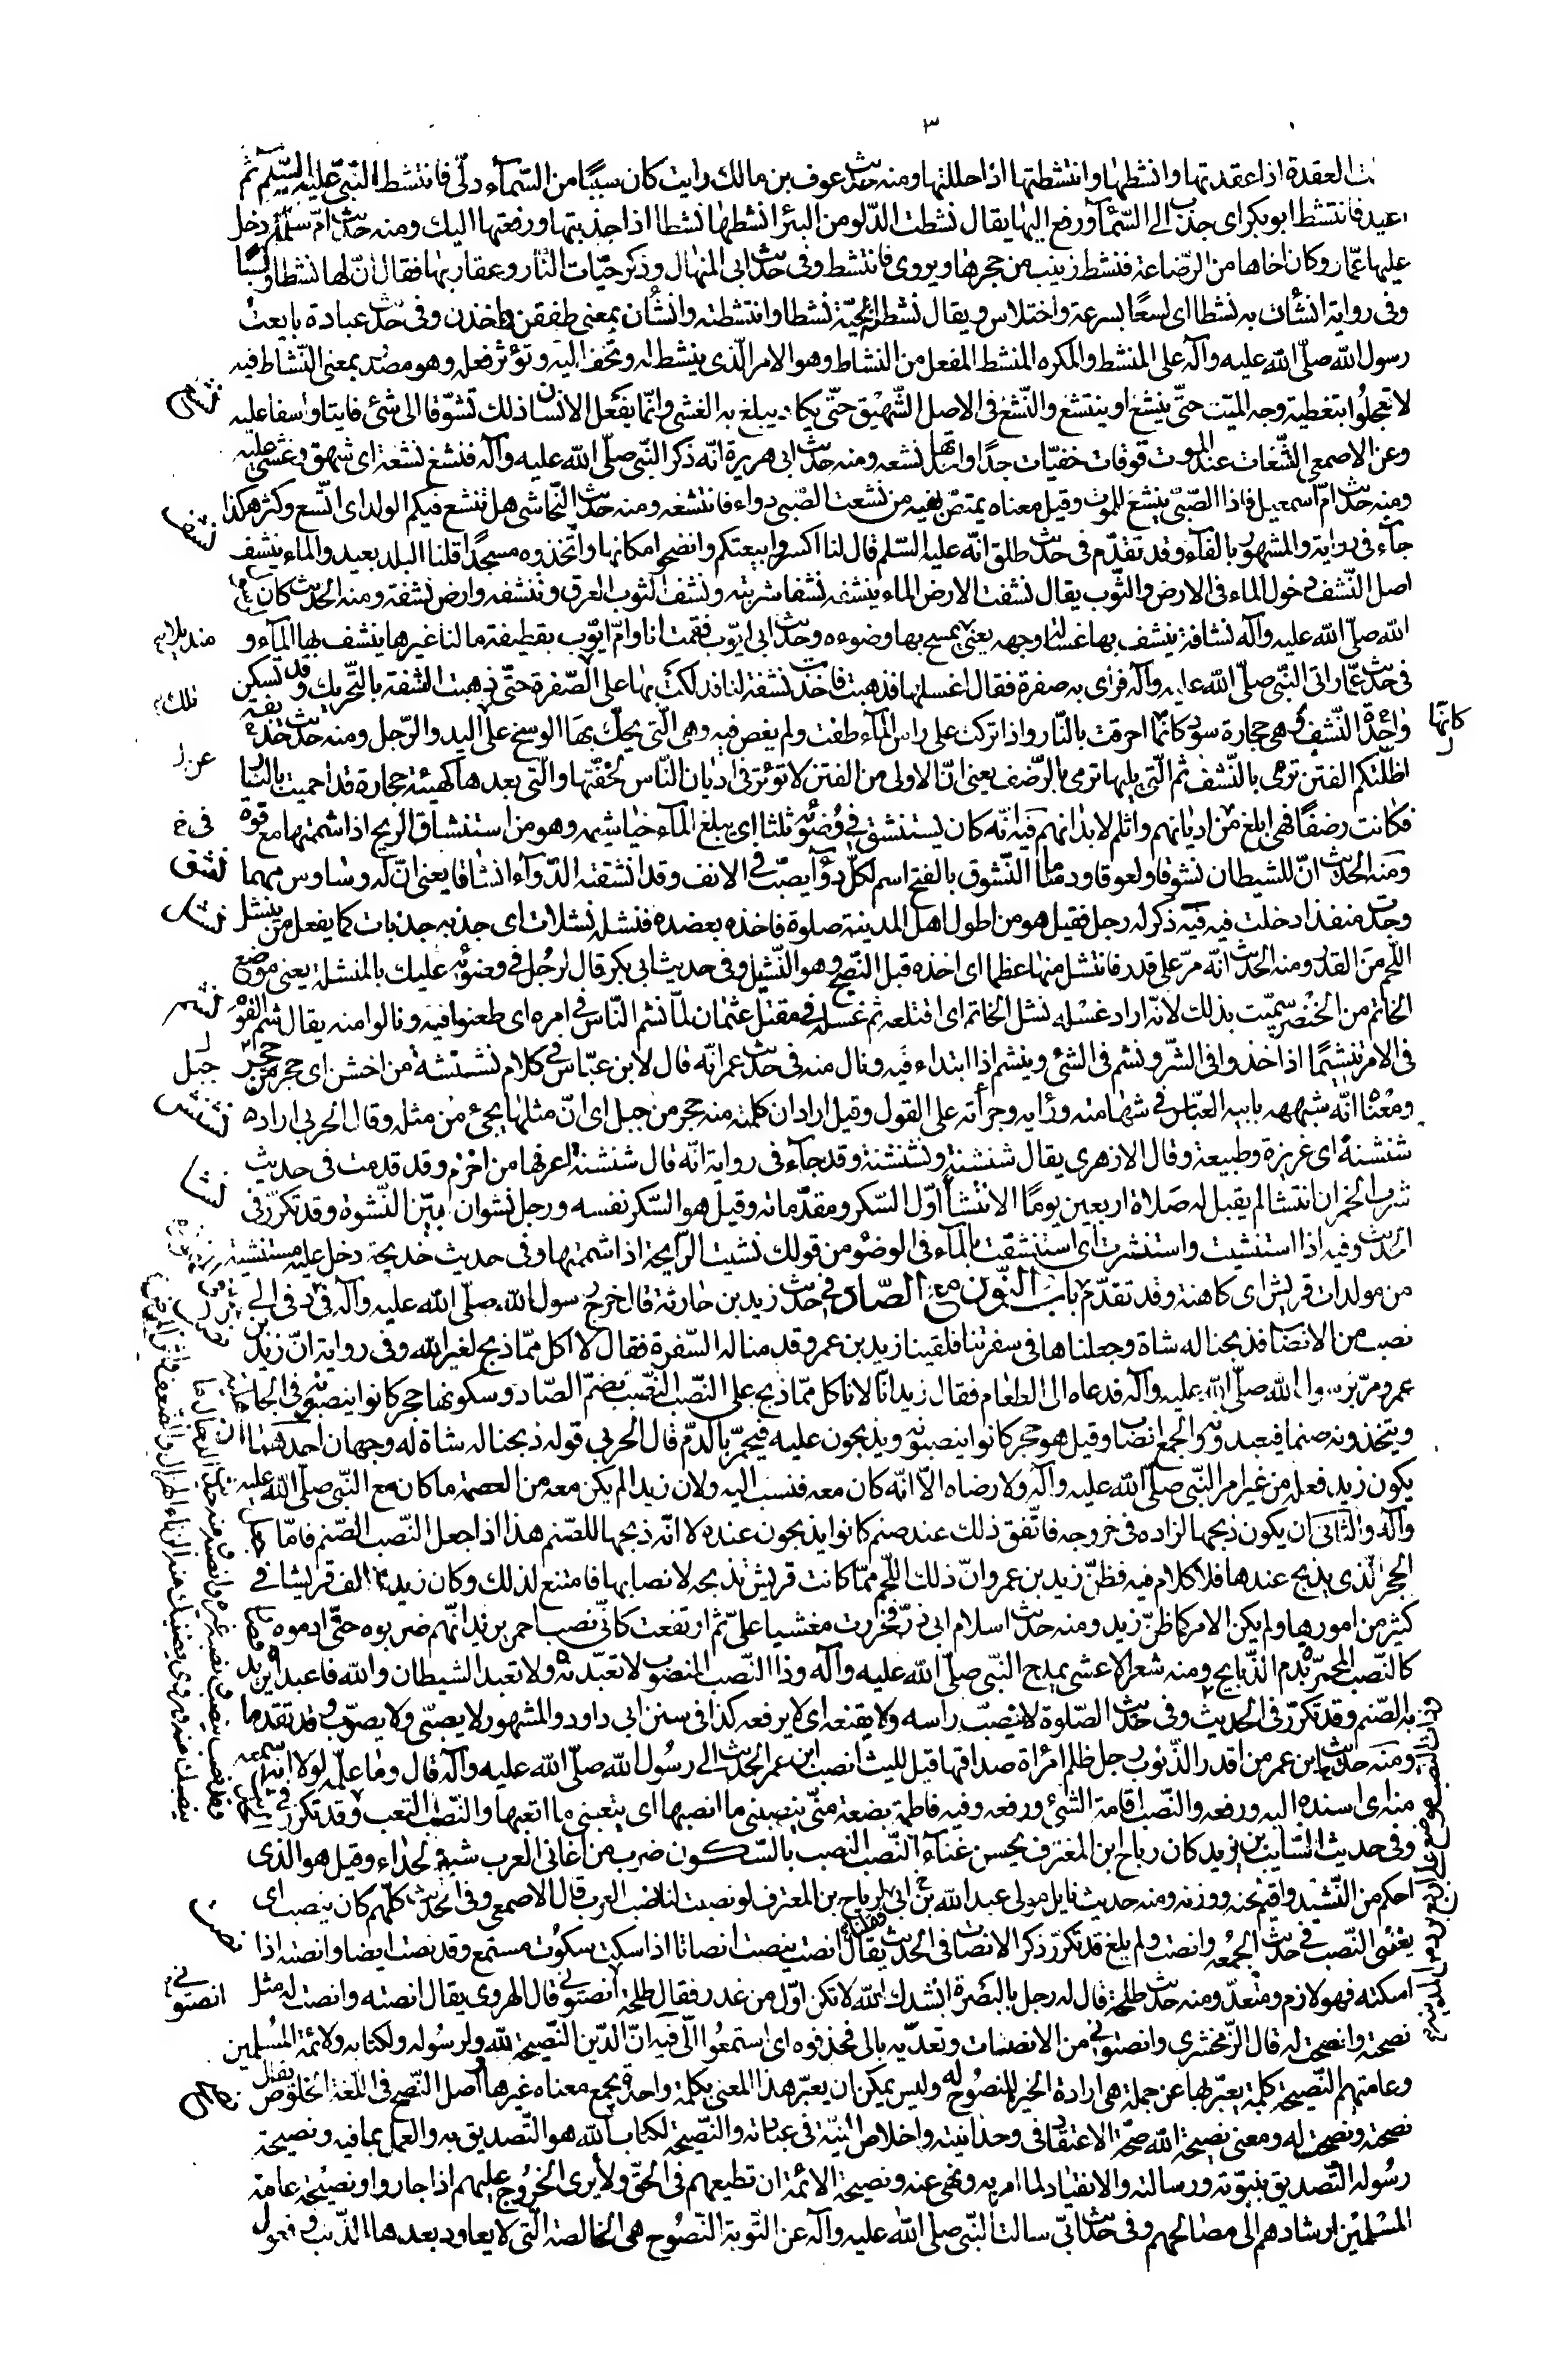 ٣
ت العقدة اذا عقدتها وانشطتها وانتشطتها اذا حللتها ومنه حديث عوف بن مالك رايت كان سببا من السّمآء دلّى فانتشط النّبىّ عليه السّلم ثم
اعيد فانتشط ابو بكر اى جذب الى السّمآء ورفع اليها يقال نشطت الدّلو من البئر انشطها نشطا اذا جذبتها ورفعتها اليك ومنه حديث امّ سلمة دخل
عليها عمّار وكان اخاها من الرّضاعة فنشط زينب من حجرها ويروى فانتشط وفى حديث ابى المنهال وذكر حيّات النّار وعقاربها فقال انّ لها نشطا ولسبًا
وفى رواية انشأن به نشطا اى لسعًا بسرعة واختلاس ويقال نشطته الحيّة نشطا وانتشطته وانشأن بمعنى طفقن واخذن وفى حديث عبادة بايعت
رسول الله صلّى الله عليه وآله على المنشط والمكره المنشط المفعل من النشاط وهو الامر الّذى ينشط له وتخف اليه وتؤثر فعله وهو مصدر بمعنى النّشاط فيه
لا تعجلوا بتغطية وجه الميّت حتّى ينشغ او ينتشغ والنّشغ فى الاصل الشّهيق حتّى يكاد يبلغ به الغشى وانّما يفعل الانسان ذلك تشوّقا الى شئ فايت او اسفا عليه
وعن الاصمعى النّشغات عند الموت فوقات خفيّات جدّا واحدتها نشغة ومنه حديث ابى هريرة انّه ذكر النّبى صلّى الله عليه وآله فنشغ نشغة اى شهق وغشى عليه
ومنه حديث امّ اسمعيل فاذا الصّبىّ ينشغ للموت وقيل معناه يمتصّ بفيه من نشعت الصّبى دواء فانتشغه ومنه حديث النّجاشى هل تنشغ فيكم الولد اى اتّسع وكثر هكذا
جآء فى رواية والمشهور بالفآء وقد تقدّم فى حديث طلق انّه عليه السّلم قال لنا اكسروا بيعتكم وانضحوا مكانها واتّخذوه مسجدًا قلنا البلد بعيد والماء ينشف
اصل النّشف دخول الماء فى الارض والثّوب يقال نشفت الارض الماء ينشفه نشفا شربته ونشف الثوب العرق وتنشفه وارض نشفة ومنه الحديث كان
الله صلّى الله عليه وآله نشافة ينشف بها غسالة وجهه يعنى يمسح بها وضوءه وحديث ابى ايّوب فقمت انا وامّ ايّوب بقطيفة ما لنا غيرها ينشف بها المآء و
فى حديث عمّار اتى النّبى صلّى الله عليه وآله فراى به صفرة فقال اغسلها فذهبت فاخذت نشفة لنا فدلكت بها على الصّفرة حتّى ذهبت النشفة بالتّحريك وقد تسكن
واحدة النّشف وهى حجارة سود كانّها احرقت بالنّار واذا تركت على راس المآء طفت ولم يغص فيه وهى الّتى يحكّ بها الوسخ على اليد والرّجل ومنه حديث حذيفة
اظلّتكم الفتن ترمى بالنّشف ثم الّتى يليها ترمى بالرّضف يعنى انّ الاولى من الفتن لا تؤثر فى اديان النّاس لخفّتها والّتى بعدها كهيئة حجارة قد احميت بالنّار
فكانت رضفًا فهى ابلغ من اديانهم واثلم لابدانهم فيه انّه كان يستنشق فى وضوئه ثلثا اى يبلغ المآء خياشيمه وهو من استنشاق الريح اذا شممتها مع قوة
ومنه الحديث انّ للشيطان نشوقا ولعوقا ودساما النّشوق بالفتح اسم لكلّ دوآء يصبّ فى الانف وقد انشقته الدّوآء انشاقا يعنى انّ له وساوس مهما
وجدت منفذا دخلت فيه فيه ذكر له رجل فقيل هو من اطول اهل المدينة صلوة فاخذه بعضده فنشله نشلات اى جذبه جذبات كما يفعل من ينشل
اللّحم من القدر ومنه الحديث انّه مرّ على قدر فانتشل منها عظما اى اخذه قبل النّضج وهو النّشيل وفى حديث ابى بكر قال لرجل فى وضوئه عليك بالمنشلة يعنى موضع
الخاتم من الخنصر سمّيت بذلك لانّه اراد غسله نشل الخاتم اى اقتلعه ثم غسله فى مقتل عثمان لمّا نشم النّاس فى امره اى طعنوا فيه ونالوا منه يقال نشّم القوم
فى الامر تنشيمًا اذا اخذوا فى الشّر ونشم فى الشئ وينشم اذا ابتداء فيه ونال منه فى حديث عمر انّه قال لابن عبّاس فى كلام نشنشة من اخشن اى حجر من
ومعناه انّه شبهه بابيه العبّاس فى شهامته ورأيه وجرأته على القول وقيل اراد ان كلمته منه حجر من جبل اى انّ مثلها يجئ من مثله وقال الحربى اراد
شنشنة اى غريزة وطبيعة وقال الازهرى يقال شنشنة ونشنشة وقد جآء فى رواية انّه قال شنشنة اعرفها من اخزم وقد قدمت فى حديث
شرب الخمر ان انتشا لم يقبل له صلاة اربعين يومًا الانتشأ اوّل السّكر ومقدّماته وقيل هو السّكر نفسه ورجل نشوان بيّن النّشوة وقد تكرّر فى
الحديث وفيه اذا استنشيت واستنثرت اى استنشقت بالمآء فى الوضوء من قولك نشيت الرّايحة اذا شممتها وفى حديث خديجة دخل عليه مستنشية
من مولدات قريش اى كاهنة وقد تقدّم باب النّون مع الصّاد فى حديث زيد بن حارثة قال خرج رسول الله صلّى الله عليه وآله مردفى الى
نصب من الانصاب فذبحنا له شاة وجعلناها فى سفرتنا فلقينا زيد بن عمرو قدمنا له السّفرة فقال لا اكل ممّا ذبح لغير الله وفى رواية انّ زيد بن
عمرو مرّ برسول الله صلّى الله عليه وآله فدعاه الى الطعام فقال زيد انّا لا ناكل ممّا ذبح على النصب النّصب بضمّ الصّاد وسكونها حجر كانوا ينصبونه فى الجاهلية
ويتخذونه صنما فيعبدونه والجمع انصاب وقيل هو حجر كانوا ينصبونه ويذبحون عليه فيحمرّ بالدّم قال الحربى قوله ذبحنا له شاة له وجهان احدهما ان
يكون زيد فعله من غير امر النّبى صلّى الله عليه وآله ولا رضاه الّا انّه كان معه فنسب اليه ولان زيد لم يكن معه من العصمة ما كان مع النّبى صلّى الله عليه
وآله والثّانى ان يكون ذبحها لزاده فى خروجه فاتّفق ذلك عند صنم كانوا يذبحون عنده لا انّه ذبحها للصّنم هذا اذا جعل النّصب الصّنم فامّا
الحجر الّذى يذبح عندها فلا كلام فيه فظنّ زيد بن عمرو انّ ذلك اللّحم ممّا كانت قريش تذبحه لانصابها فامتنع لذلك وكان زيد يخالف قريشا فى
كثير من امورها ولم يكن الامر كما ظنّ زيد ومنه حديث اسلام ابى ذرّ فخررت مغشيا علىّ ثم ارتفعت كانّى نصب احمر يريد انّهم ضربوه حتّى ادموه
كالنّصب المحمرّ بدم الذّبايح ومنه شعر الاعشى يمدح النّبى صلّى الله عليه وآله وذا النّصب المنصوب لا تعبدنّه ولا تعبد الشيطان والله فاعبدا يريد
به الصّنم وقد تكرّر فى الحديث وفى حديث الصّلوة لا ينصب راسه ولا يقنعه اى لا يرفعه كذا فى سنن ابى داود والمشهور لا يصبّى ولا يصوّب وقد تقدما
ومنه حديث ابن عمر من اقذر الذّنوب رجل ظلم امراة صداقها قيل لليث انصب ابن عمر الحديث الى رسول الله صلّى الله عليه وآله قال وما علمه لولا انّه سمعه
منه اى اسنده اليه ورفعه والنّصب اقامة الشّئ ورفعه وفيه فاطمة بضعة منّى ينصبنى ما انصبها اى يتعبنى ما اتعبها والنّصب التعب وقد تكرّر فى
وفى حديث السّايب بن يزيد كان رباح ابن المغترف يحسن غنآء النّصب النصب بالسّكون ضرب من اغانى العرب شبيه الحداء وقيل هو الذى
احكم من النّشيد واقيم لحنه ووزنه ومنه حديث نايل مولى عبد الله بن ابى لرباح بن المعترف لو نصبت لنا نصب العرب قال الاصمعى وفى الحديث كلّهم كان ينصب اى
يغنّى النّصب فى حديث الجمعة وانصت ولم يلغ قد تكرّر ذكر الانصات فى الحديث يقال انصت ينصت انصاتا اذا سكت سكوت مستمع وقد نصت ايضا وانصته اذا
اسكته فهو لازم ومتعدّ ومنه حديث طلحة قال له رجل بالبصرة انشدك الله لا تكن اوّل من غدر فقال طلحة انصتونى قال الهروى يقال انصته وانصت له مثل
نصحته ونصحت له قال الزّمخشرى وانصتونى من الانصات وتعدّيه بالى فحذفوه اى استمعوا الّى فيه انّ الدّين النّصيحة لله ولرسوله ولكتابه ولائمّة المسلمين
وعامتهم النّصيحة كلمة يعبّر بها عن جملة هى ارادة الخير للمنصوح له وليس يمكن ان يعبّر هذا المعنى بكلمة واحدة يجمع معناه غيرها واصل النّصح فى اللّغة الخلوص يقال
نصحته ونصحت له ومعنى نصيحة الله صحّة الاعتقاد فى وحدانيته واخلاص النيّة فى عبادته والنّصيحة لكتاب الله هو التّصديق به والعمل بما فيه ونصيحة
رسوله التّصديق بنبوّته ورسالته والانقياد لما امر به ونهى عنه ونصيحة الائمّة ان تطيعهم فى الحقّ ولا يرى الخروج عليهم اذا جاروا ونصيحة عامة
المسلمين ارشادهم الى مصالحهم وفى حديث ابىّ سالت النّبى صلى الله عليه وآله عن التّوبة النّصوح هى الخالصة الّتى لا يعاود بعدها الذّنب وفعول
نشغ
نشف
تلك
كانّها
فى خ
نشق
نشل
نشم
جبل
نشنش
نشا
نصب
نصت
انصتونى
نصح